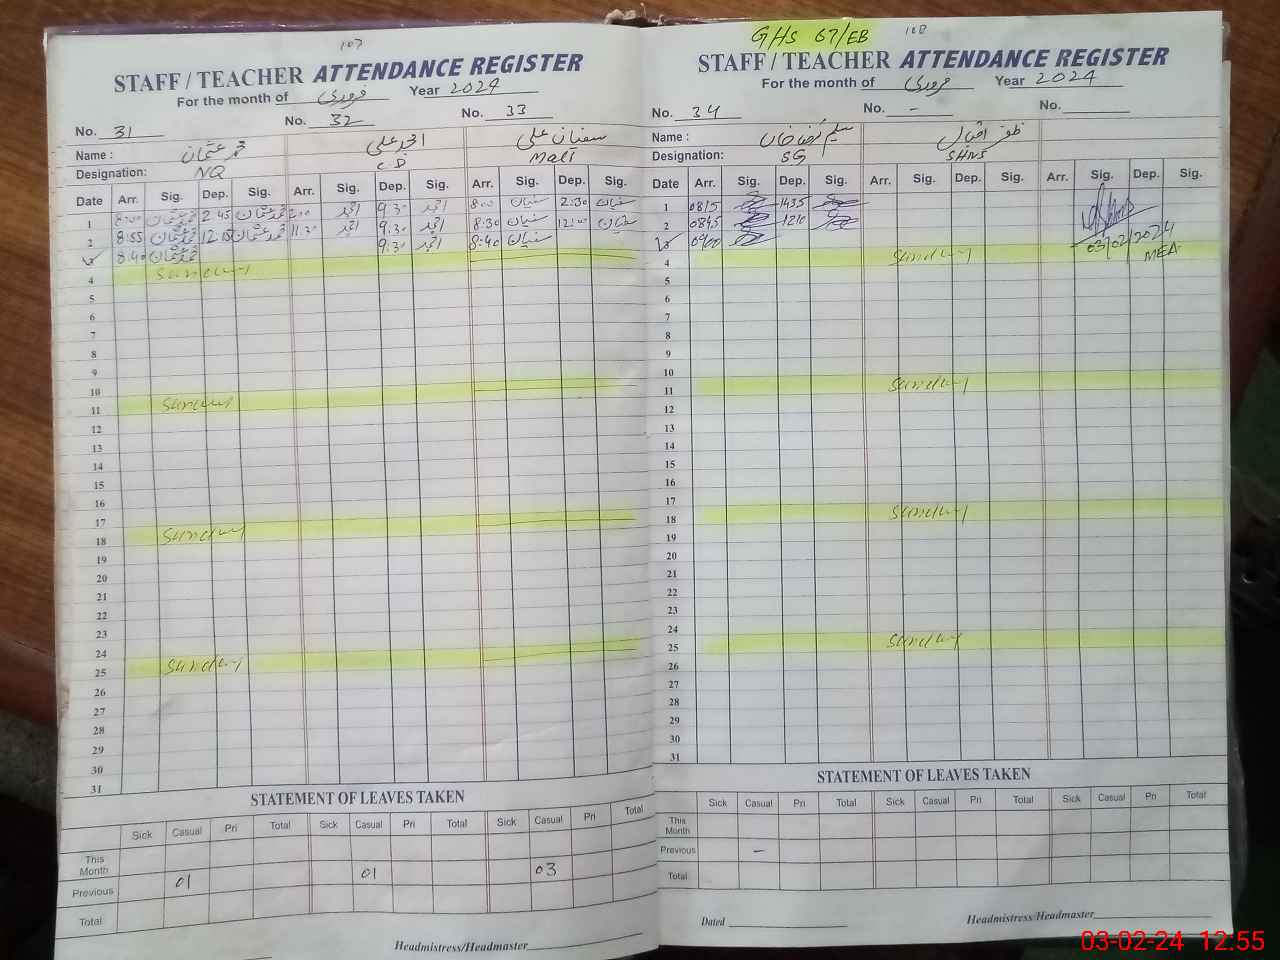 107
STAFF / TEACHER ATTENDANCE REGISTER
For the month of فروری Year 2024
No. 31 No. 32 No. 33
Name : محمد عثمان امجد علی سفیان علی
Designation: NQ Mali
Date Arr. Sig. Dep. Sig. Arr. Sig. Dep. Sig. Arr. Sig. Dep. Sig.
1 8:00 محمد عثمان 2:45 محمد عثمان امجد 9.30 امجد 8:00 سفیان 2:30 سفیان
2 8:55 محمد عثمان 12:15 محمد عثمان 11.30 امجد 9.30 امجد 8:30 سفیان 12:00 سفیان
8:40 محمد عثمان 9.30 امجد 8:40 سفیان
4 Sunday
5
6
7
8
9
10
11 Sunday
12
13
14
15
16
17
18 Sunday
19
20
21
22
23
24
25 Sunday
26
27
28
29
30
31
STATEMENT OF LEAVES TAKEN
Sick Casual Pri Total Sick Casual Pri Total Sick Casual Pri Total
This Month
Previous 01 01 03
Total
Headmistress/Headmaster
GHS 67/EB 108
STAFF / TEACHER ATTENDANCE REGISTER
For the month of فروری Year 2024
No. 34 No. - No.
Name : ظفر اقبال
Designation: SG SHNS
Date Arr. Sig. Dep. Sig. Arr. Sig. Dep. Sig. Arr. Sig. Dep. Sig.
1 0815 1435
2 0845 1210
0900
03/02/2024
MEA
4 Sunday
5
6
7
8
9
10
11 Sunday
12
13
14
15
16
17
18 Sunday
19
20
21
22
23
24
25 Sunday
26
27
28
29
30
31
STATEMENT OF LEAVES TAKEN
Sick Casual Pri Total Sick Casual Pri Total Sick Casual Pri Total
This Month
Previous -
Total
Dated Headmistress/Headmaster
03-02-24 12:55